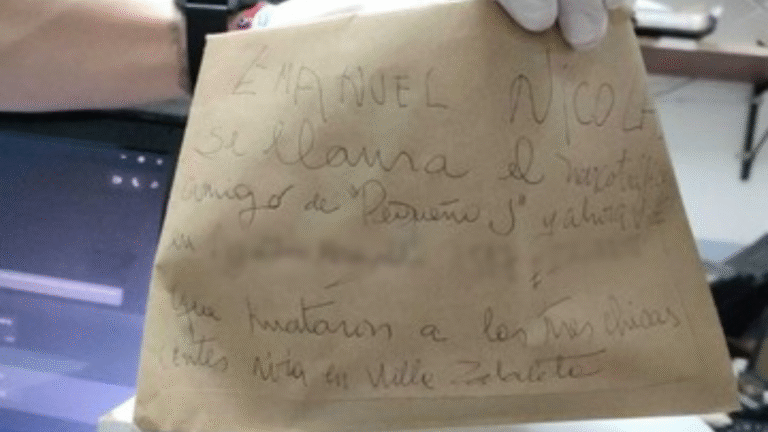 EMANUEL NICOLA
Se llama el narcotrafic
amigo de "Pequeño J" y ahora VIVE
en
que mataron a las tres chicas
antes vivia en Villa Zabaleta